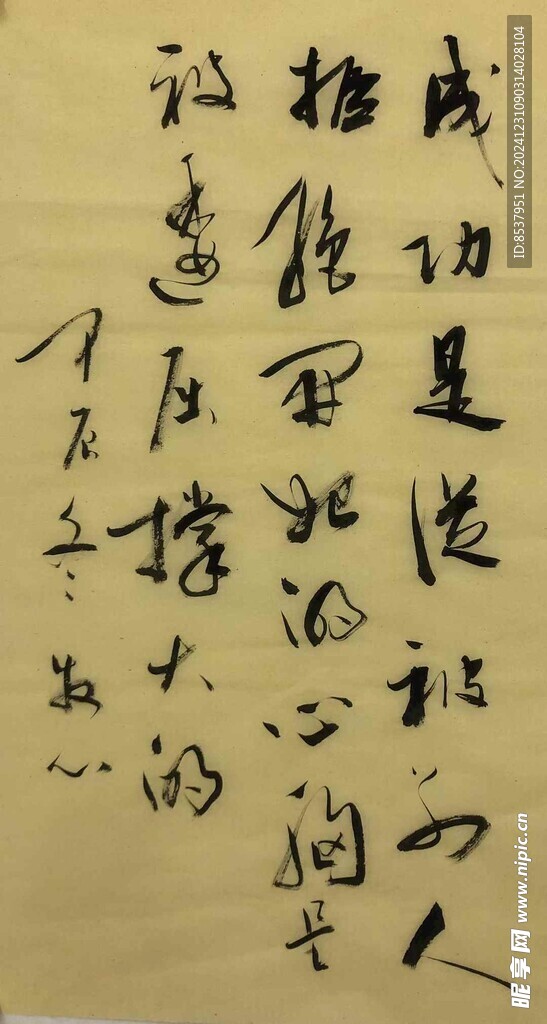 成功是从被别人
拒绝开始的心胸是
被委屈撑大的
甲辰冬 牧心
ID:8537951 NO:20241231090314028104
昵享网 www.nipic.cn